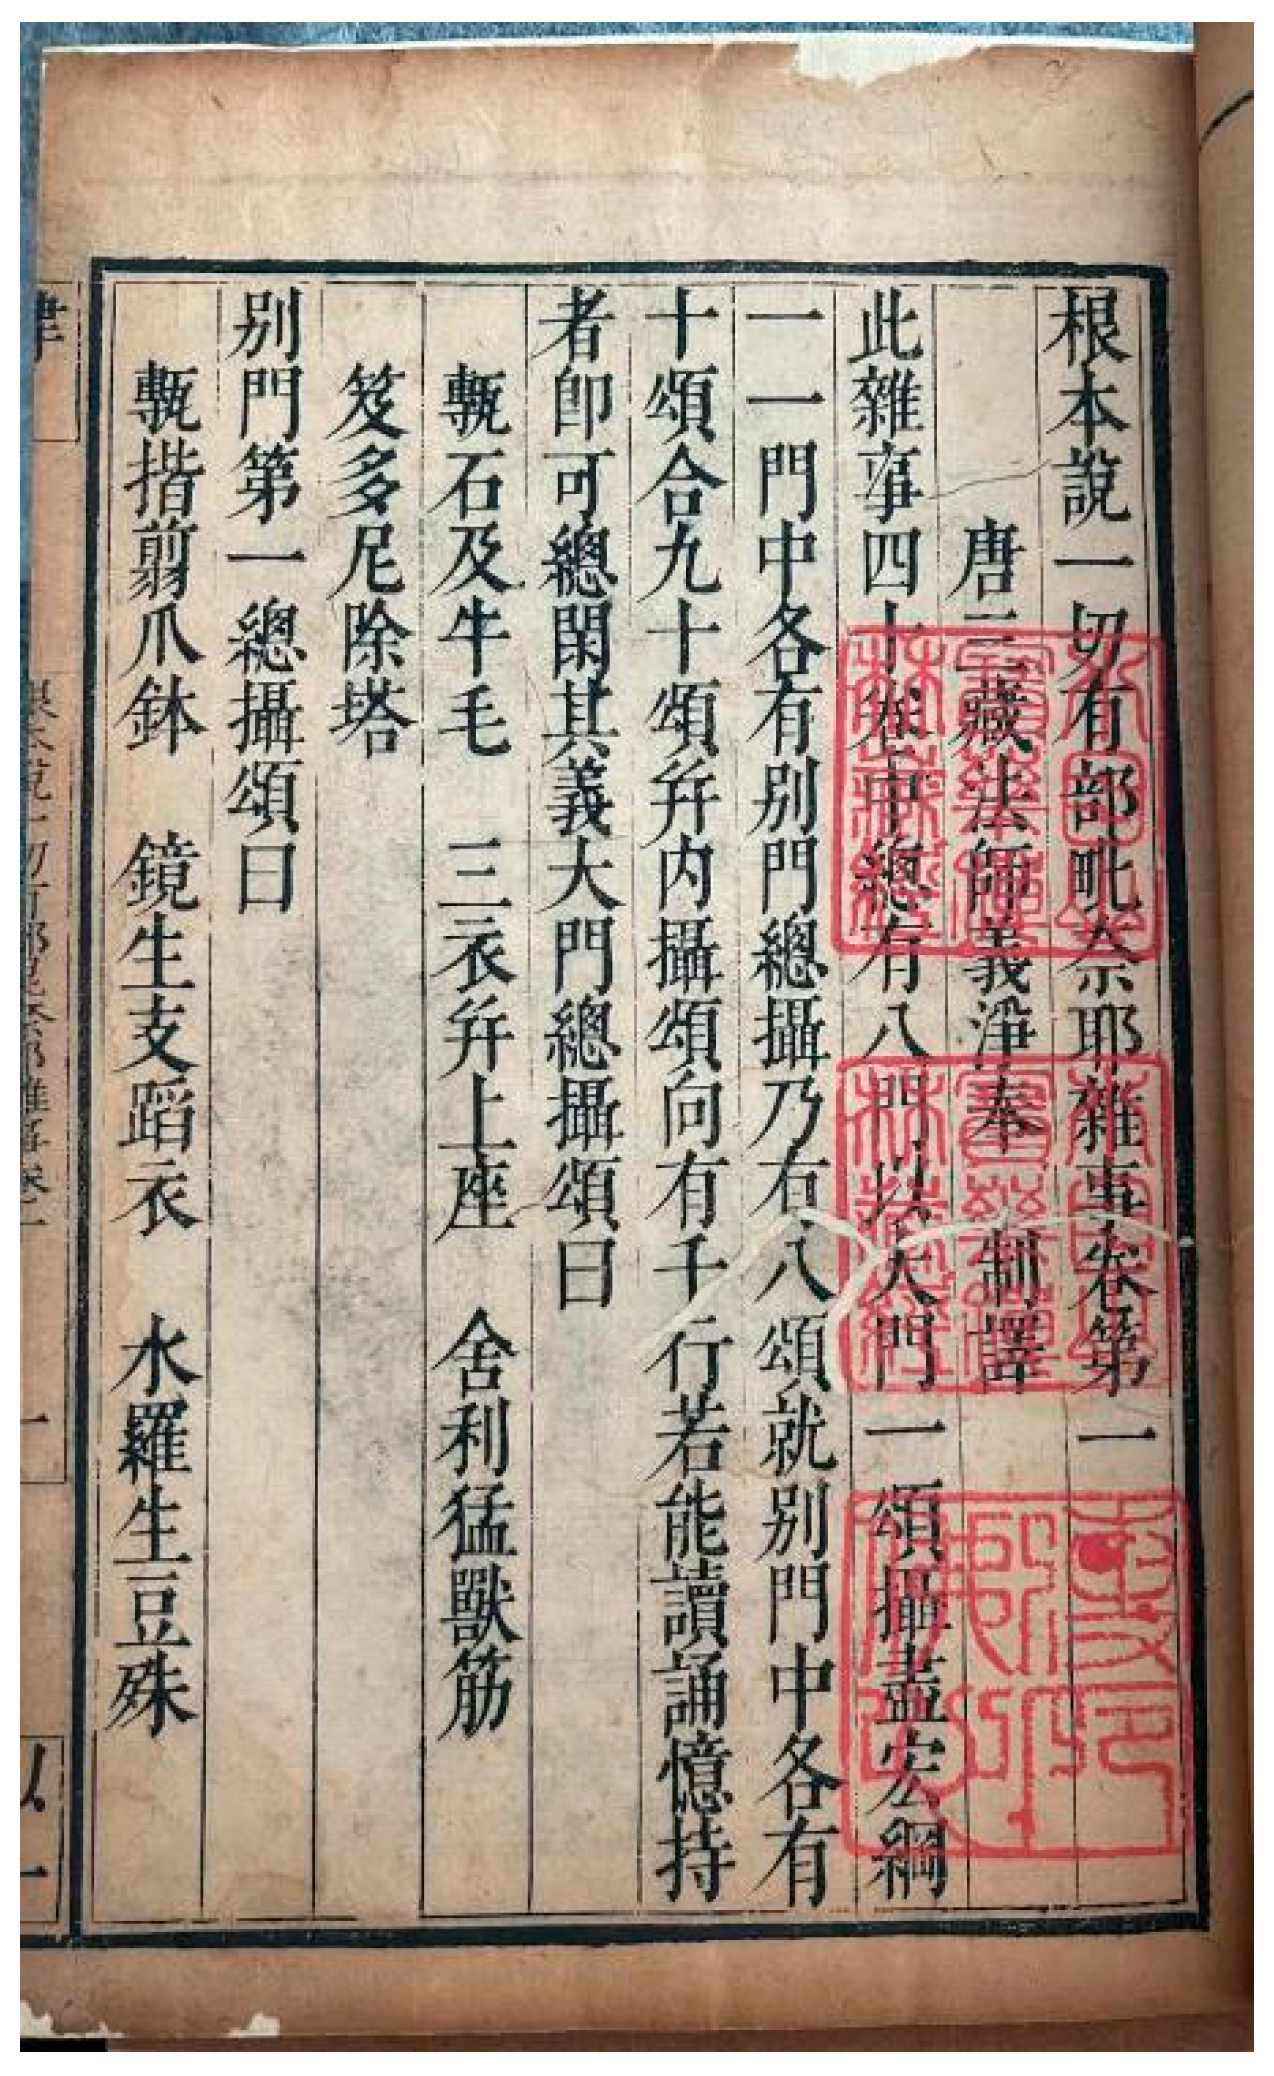 根本說一切有部毗奈耶雜事卷第一
唐三藏法師義淨奉 制譯
此雜事四十卷中總有八門以大門一頌攝盡宏綱
一一門中各有別門總攝乃有八頌就別門中各有
十頌合九十頌并內攝頌向有千行若能讀誦憶持
者即可總閑其義大門總攝頌曰
甎石及牛毛 三衣并上座 舍利猛獸筋
笈多尼除塔
別門第一總攝頌曰
甎揩剪爪鉢 鏡生支蹈衣 水羅生豆殊
律
根本說一切有部毗奈耶雜事卷一
一